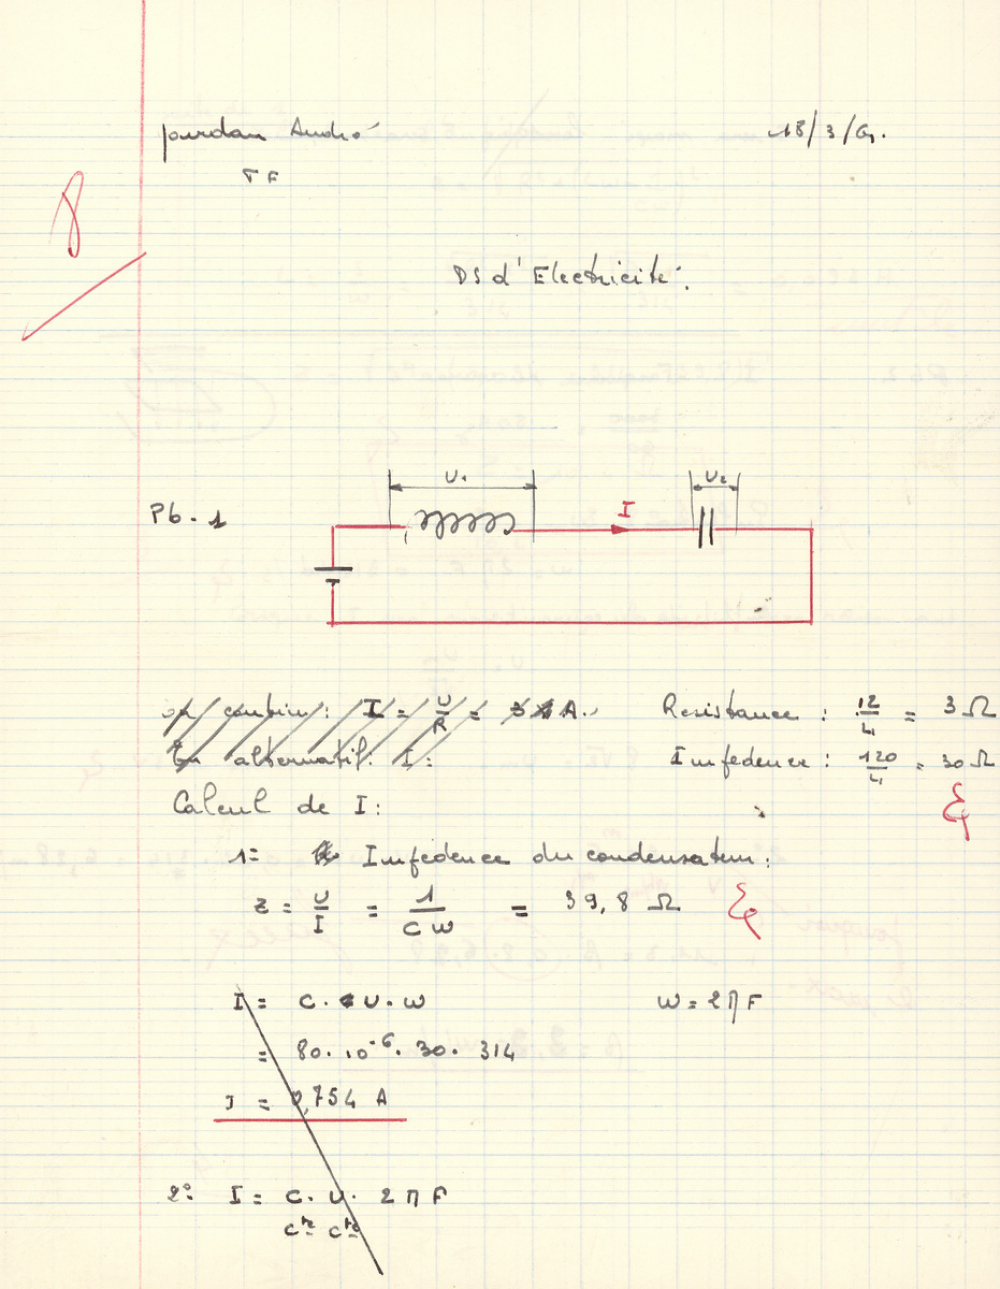 Jourdan André 18/3/61.
TF
8
DS d'Electricité.
U1 U2
Pb. 1 I
En continu : I = U/R = A. Resistance : 12/4 = 3 Ω
En alternatif. I : Impedence : 120/4 = 30 Ω
Calcul de I :
1= Impedence du condensateur :
z = U/I = 1/CW = 39,8 Ω
I = C. U. W W = 2πF
= 80. 10⁻⁶. 30. 314
I = 0,754 A
2° I = C. U. 2πF
Cte Cte